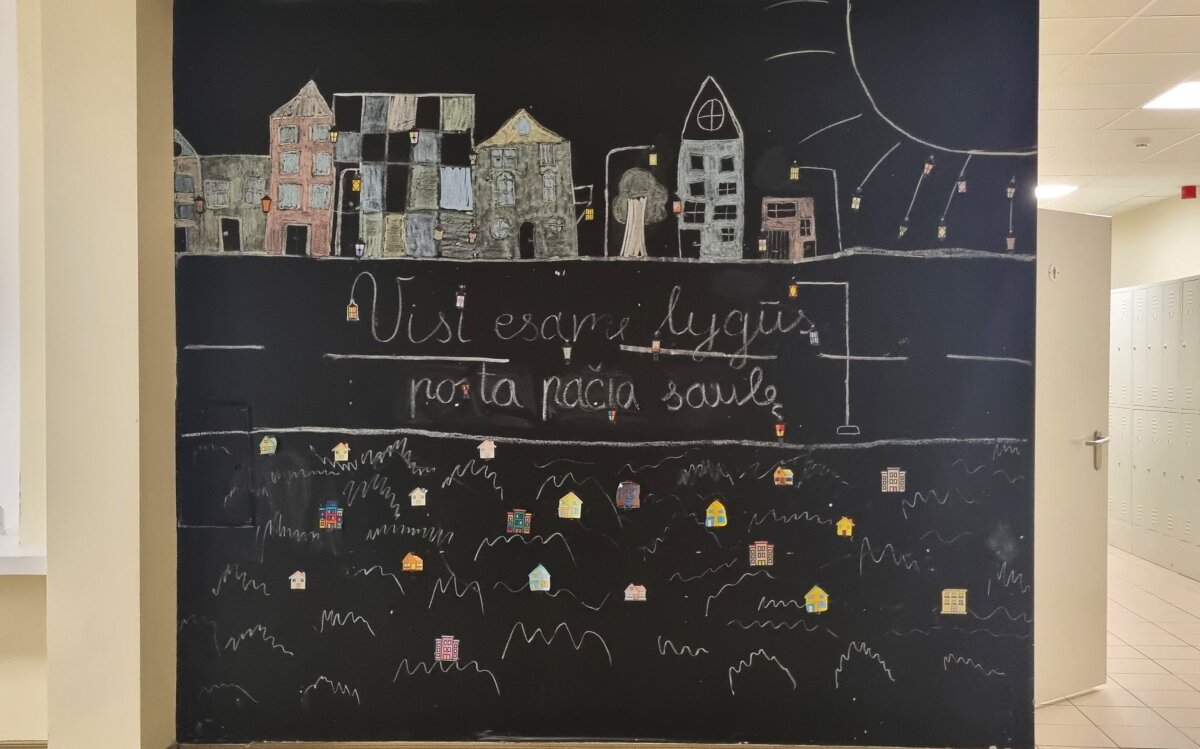 Visi esame lygūs
po ta pačia saule